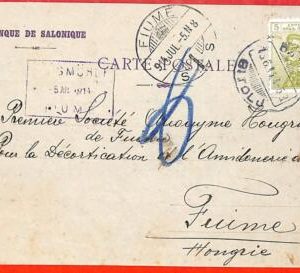 NQUE DE SALONIQUE
FIUME
JUL.-5.N8
CARTE POSTALE
5
JUL 1914
FIUM
Première Société Anonyme Hongroi
de Fiume
Pour la Décortication et l'Amidonerie d
Fiume
Hongrie